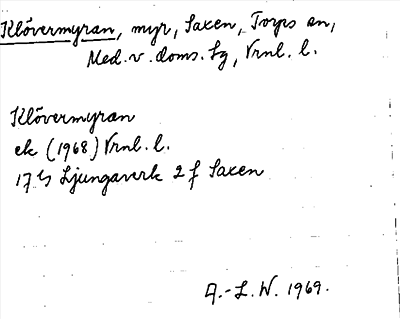 Klövermyran, myr, Saxen, Torps sn,
Med. v. doms. sg, Vrnl. l.
Klövermyran
ek (1968) Vrnl. l.
17 G Ljungaverk 2 f Saxen
A.-L. W. 1969.